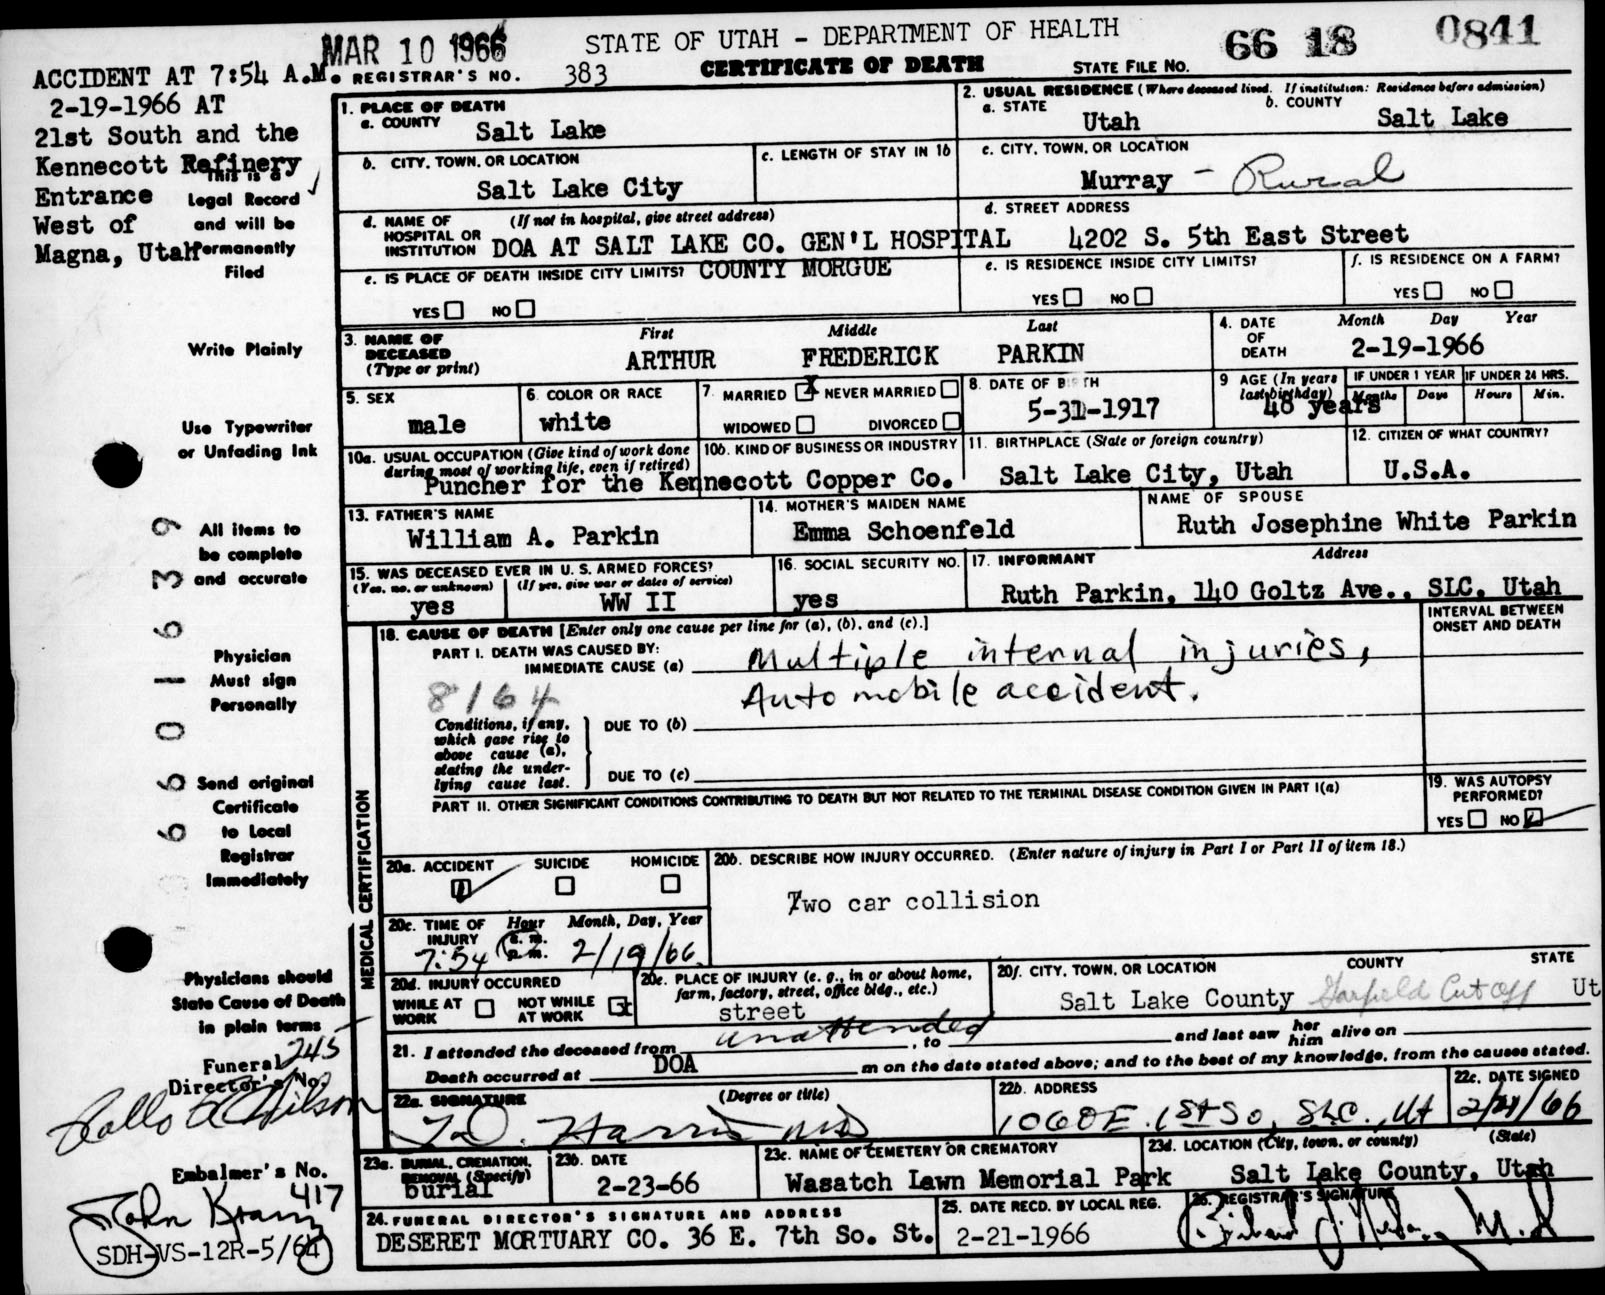 MAR 10 1966
STATE OF UTAH - DEPARTMENT OF HEALTH
66 18 0841
ACCIDENT AT 7:54 A.M.
REGISTRAR'S NO. 383
CERTIFICATE OF DEATH
STATE FILE NO.
2-19-1966 AT
21st South and the
Kennecott Refinery
Entrance
West of
Magna, Utah
This is a
Legal Record
and will be
Permanently
Filed
Write Plainly
Use Typewriter
or Unfading Ink
All items to
be complete
and accurate
Physician
Must sign
Personally
Send original
Certificate
to Local
Registrar
Immediately
Physicians should
State Cause of Death
in plain terms
Funeral 245
Director's No.
Embalmer's No.
417
SDH-VS-12R-5/64
6 6 0 1 6 3 9
1. PLACE OF DEATH
a. COUNTY Salt Lake
2. USUAL RESIDENCE (Where deceased lived. If institution: Residence before admission)
a. STATE Utah
b. COUNTY Salt Lake
b. CITY, TOWN, OR LOCATION
Salt Lake City
c. LENGTH OF STAY IN 1b
c. CITY, TOWN, OR LOCATION
Murray - Rural
d. NAME OF HOSPITAL OR INSTITUTION (If not in hospital, give street address)
DOA AT SALT LAKE CO. GEN'L HOSPITAL
COUNTY MORGUE
d. STREET ADDRESS
4202 S. 5th East Street
e. IS PLACE OF DEATH INSIDE CITY LIMITS?
YES NO
e. IS RESIDENCE INSIDE CITY LIMITS?
YES NO
f. IS RESIDENCE ON A FARM?
YES NO
3. NAME OF DECEASED (Type or print)
First Middle Last
ARTHUR FREDERICK PARKIN
4. DATE OF DEATH
Month Day Year
2-19-1966
5. SEX
male
6. COLOR OR RACE
white
7. MARRIED X NEVER MARRIED
WIDOWED DIVORCED
8. DATE OF BIRTH
5-31-1917
9 AGE (In years last birthday)
48 years
IF UNDER 1 YEAR
Months Days
IF UNDER 24 HRS.
Hours Min.
10a. USUAL OCCUPATION (Give kind of work done during most of working life, even if retired)
10b. KIND OF BUSINESS OR INDUSTRY
Puncher for the Kennecott Copper Co.
11. BIRTHPLACE (State or foreign country)
Salt Lake City, Utah
12. CITIZEN OF WHAT COUNTRY?
U.S.A.
13. FATHER'S NAME
William A. Parkin
14. MOTHER'S MAIDEN NAME
Emma Schoenfeld
NAME OF SPOUSE
Ruth Josephine White Parkin
15. WAS DECEASED EVER IN U. S. ARMED FORCES?
(Yes, no, or unknown) (If yes, give war or dates of service)
yes WW II
16. SOCIAL SECURITY NO.
yes
17. INFORMANT Address
Ruth Parkin, 140 Goltz Ave., SLC, Utah
MEDICAL CERTIFICATION
18. CAUSE OF DEATH [Enter only one cause per line for (a), (b), and (c).]
INTERVAL BETWEEN ONSET AND DEATH
PART I. DEATH WAS CAUSED BY:
IMMEDIATE CAUSE (a) Multiple internal injuries,
8164 Automobile accident.
Conditions, if any, which gave rise to above cause (a), stating the underlying cause last.
DUE TO (b)
DUE TO (c)
PART II. OTHER SIGNIFICANT CONDITIONS CONTRIBUTING TO DEATH BUT NOT RELATED TO THE TERMINAL DISEASE CONDITION GIVEN IN PART I(a)
19. WAS AUTOPSY PERFORMED?
YES NO
20a. ACCIDENT SUICIDE HOMICIDE
20b. DESCRIBE HOW INJURY OCCURRED. (Enter nature of injury in Part I or Part II of item 18.)
Two car collision
20c. TIME OF INJURY Hour Month, Day, Year
7:54 a.m. p.m. 2/19/66
20d. INJURY OCCURRED
WHILE AT WORK NOT WHILE AT WORK
20e. PLACE OF INJURY (e. g., in or about home, farm, factory, street, office bldg., etc.)
street
20f. CITY, TOWN, OR LOCATION COUNTY STATE
Salt Lake County Garfield Cut off Ut
21. I attended the deceased from unattended, to and last saw her him alive on
Death occurred at DOA m on the date stated above; and to the best of my knowledge, from the causes stated.
22a. SIGNATURE (Degree or title)
22b. ADDRESS
1060 E. 1st So, SLC., Ut
22c. DATE SIGNED
2/21/66
23a. BURIAL, CREMATION, REMOVAL (Specify)
burial
23b. DATE
2-23-66
23c. NAME OF CEMETERY OR CREMATORY
Wasatch Lawn Memorial Park
23d. LOCATION (City, town, or county) (State)
Salt Lake County, Utah
24. FUNERAL DIRECTOR'S SIGNATURE AND ADDRESS
DESERET MORTUARY CO. 36 E. 7th So. St.
25. DATE RECD. BY LOCAL REG.
2-21-1966
26. REGISTRAR'S SIGNATURE